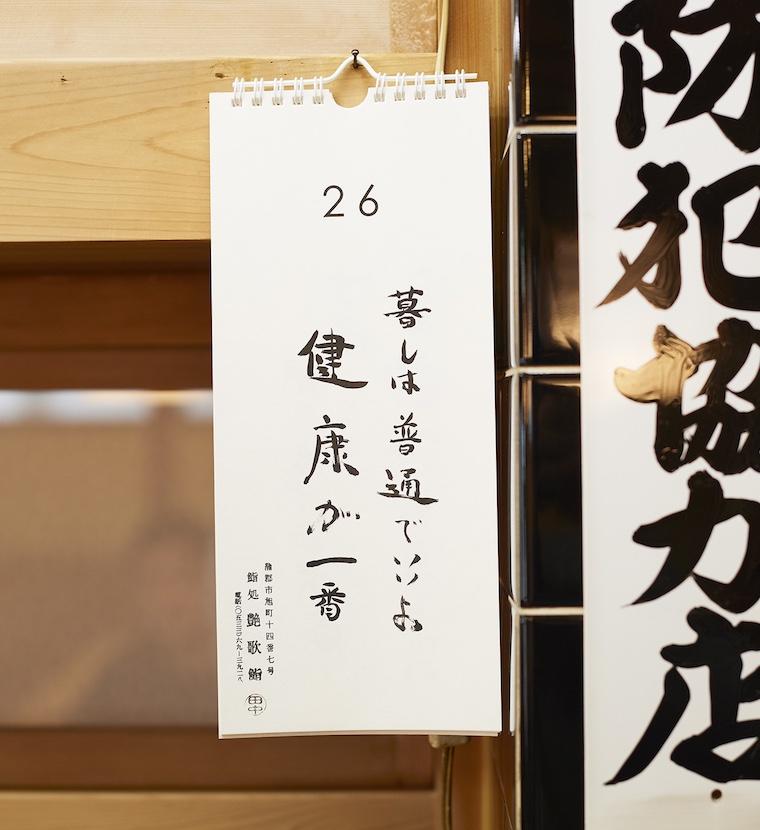 26
暮しは普通でいいよ
健康が一番
蒲郡市旭町十四番七号
鮨処 艶歌鮨
電話(〇五三三)六九-三九二八
田中
防犯協力店